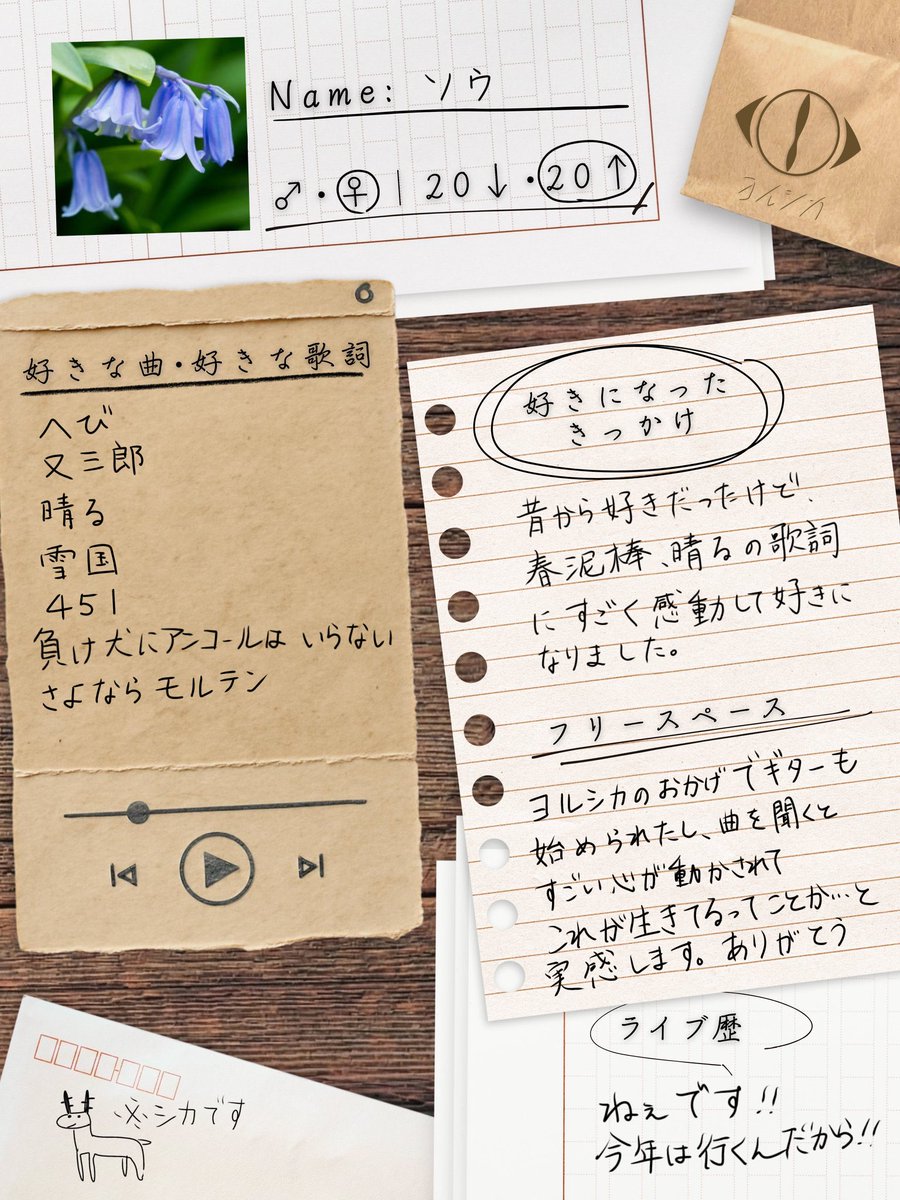 Name: ソウ
♂・♀ | 20↓・20↑
ヨルシカ
6
好きな曲・好きな歌詞
へび
又三郎
晴る
雪国
451
負け犬にアンコールは いらない
さよならモルテン
好きになった
きっかけ
昔から好きだったけど、
春泥棒、晴るの歌詞
にすごく感動して好きに
なりました。
フリースペース
ヨルシカのおかげでギターも
始められたし、曲を聞くと
すごい心が動かされて
これが生きてるってことか…と
実感します。ありがとう
ライブ歴
ねぇです!!
今年は行くんだから!!
※シカです